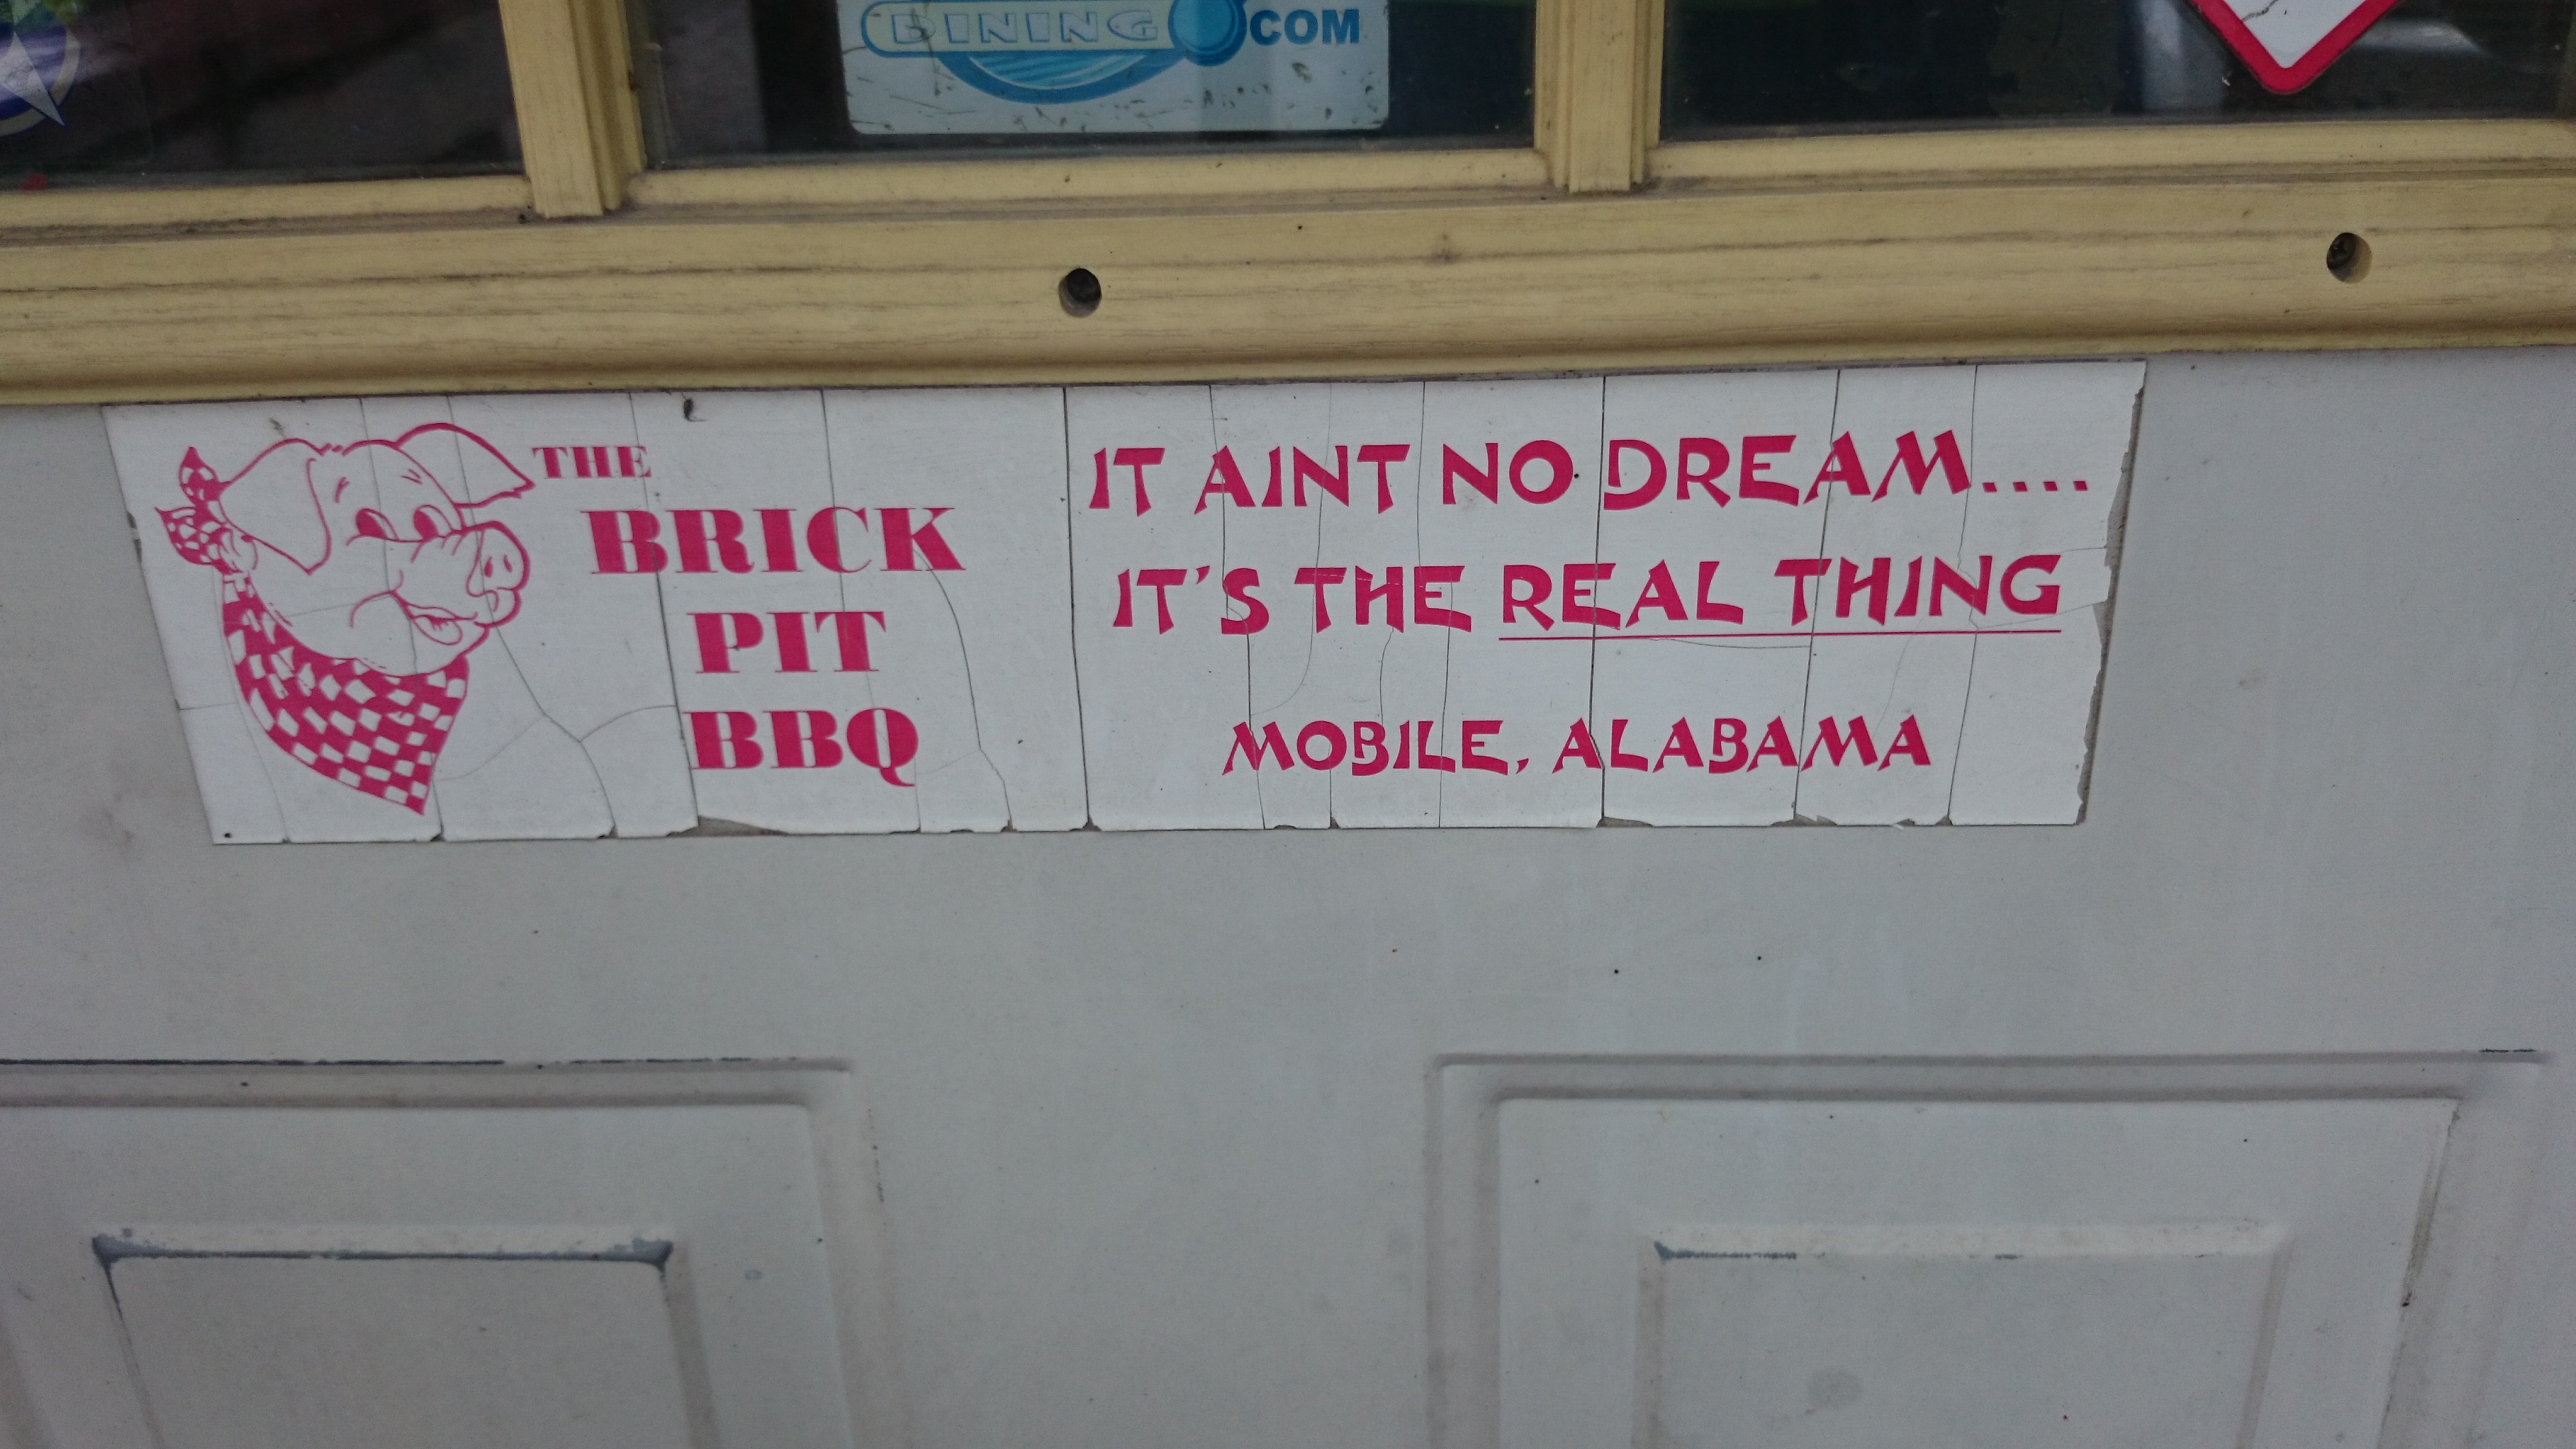 DINING COM
THE
BRICK
PIT
BBQ
IT AINT NO DREAM....
IT'S THE REAL THING
MOBILE, ALABAMA